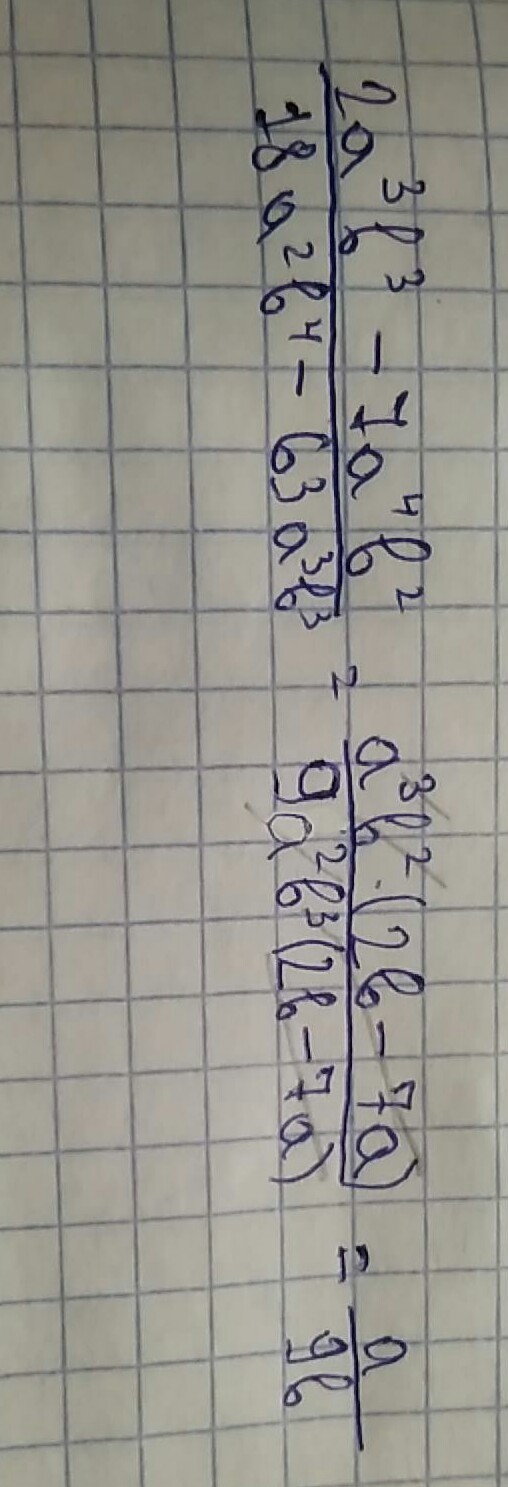 2a³b³ - 7a⁴b² / 18a²b⁴ - 63a³b³ = a³b² · (2b - 7a) / 9a²b³(2b - 7a) = a / 9b